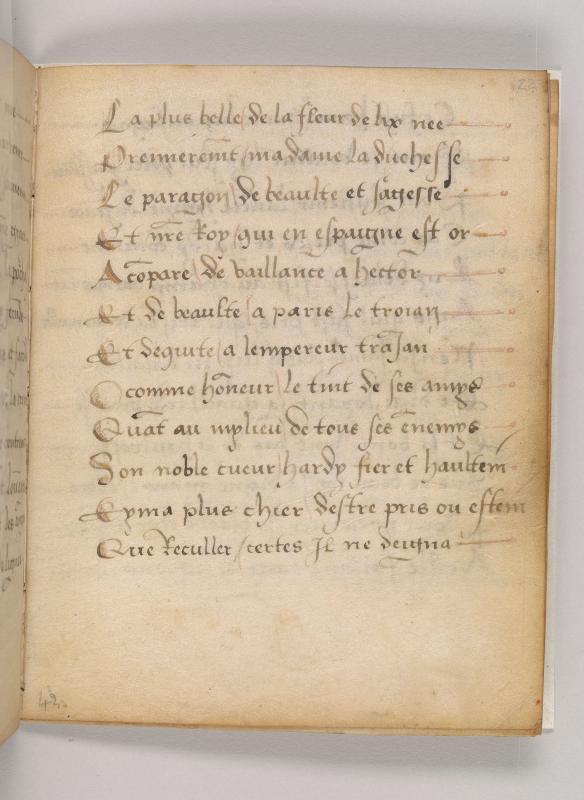 22
La plus belle / de la fleur de lix nee
Premieremt / madame la duchesse
Le paragon / de beaulte et sagesse
Et nr̃e Roy / qui en espaigne est or
A cõpare / de vaillance a hector
Et de beaulte / a paris le troian
Et dequite / a lempereur traJan
O comme hõneur / le tint de ses amys
Quãt au mylieu / de tous ses ẽnemys
Son noble cueur / hardy fier et haultem̃
Eyma plus chier destre pris ou
Que Reculler / certes Jl ne deigna
42.